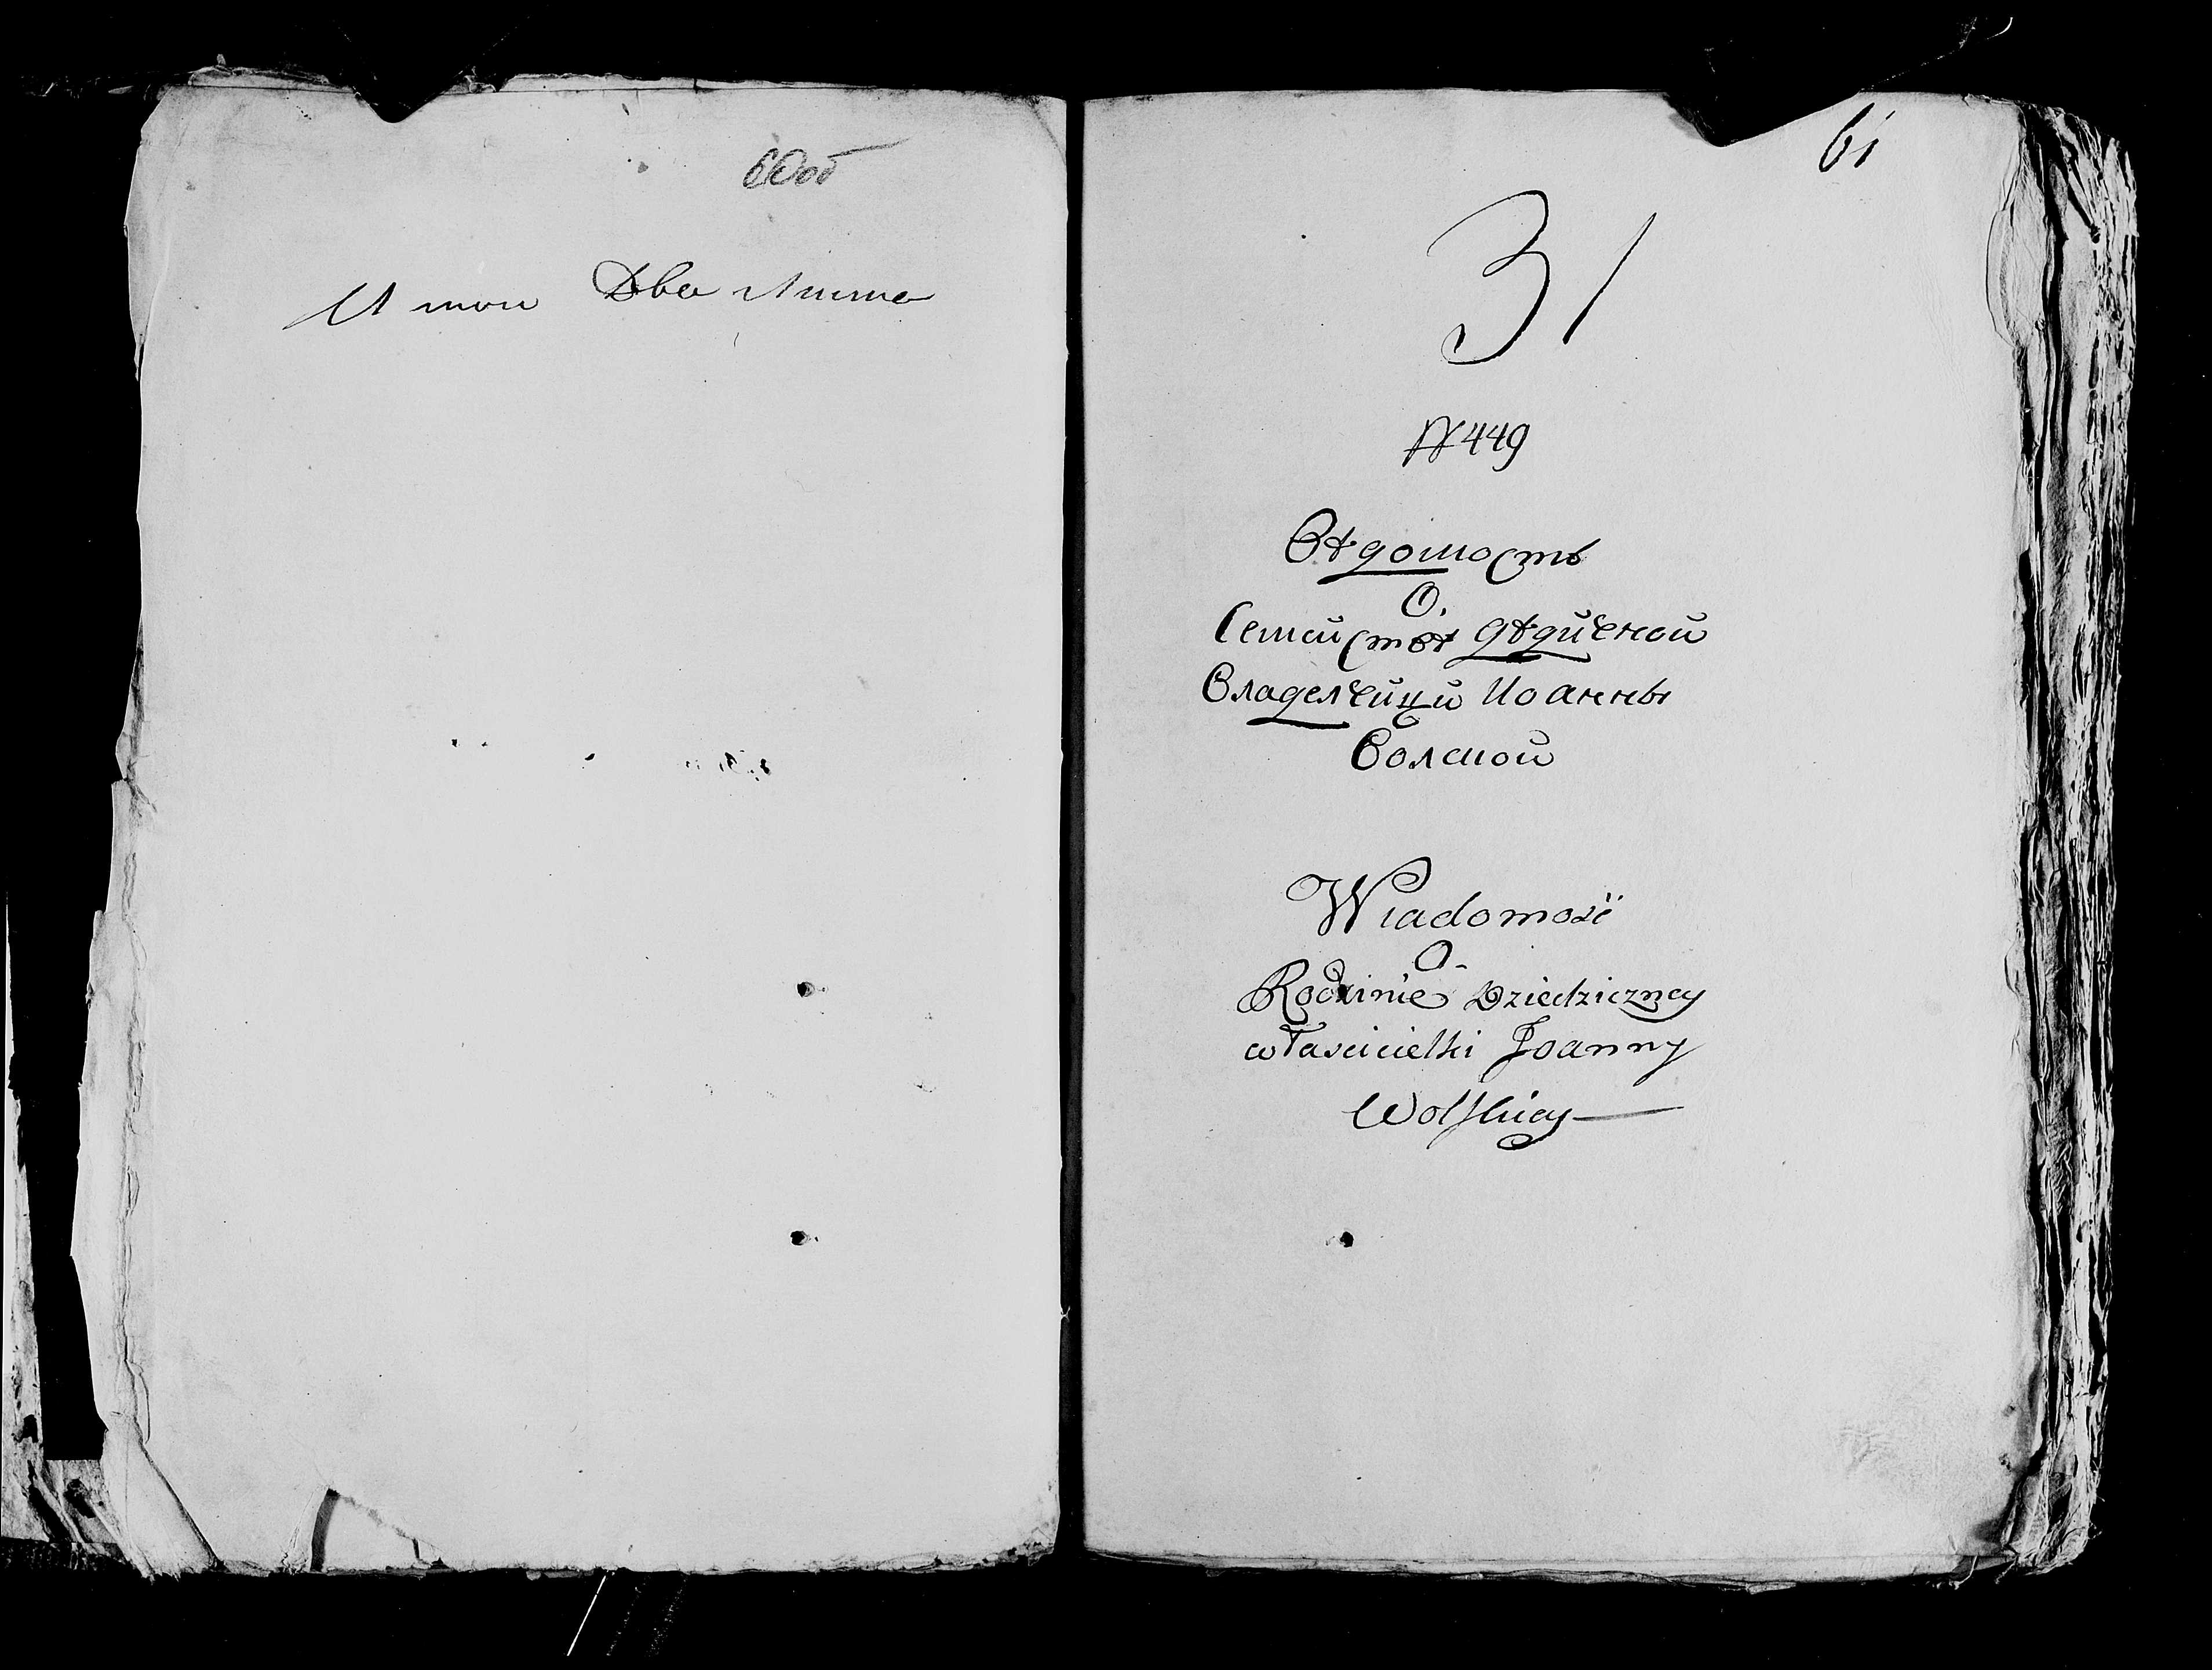 60об
И того Два листа
61
31
№ 449
Вѣдомость
О.
Семействѣ дѣдичной
Владелчицы Иоанны
Волской
Wiadomość
O
Rodzinie Dziedziczney
włascicielki Joanny
Wolskiey